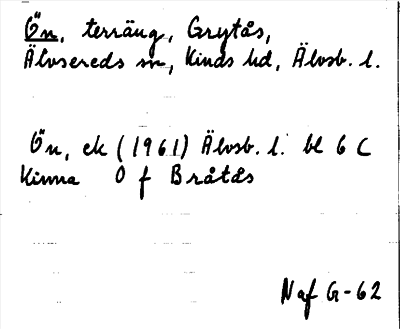 Ön, terräng, Grytås,
Älvsereds sn, Kinds hd, Älvsb. l.
Ön, ek (1961) Älvsb. l. bl 6 C
Kinna O f Bråtås
Naf G-62